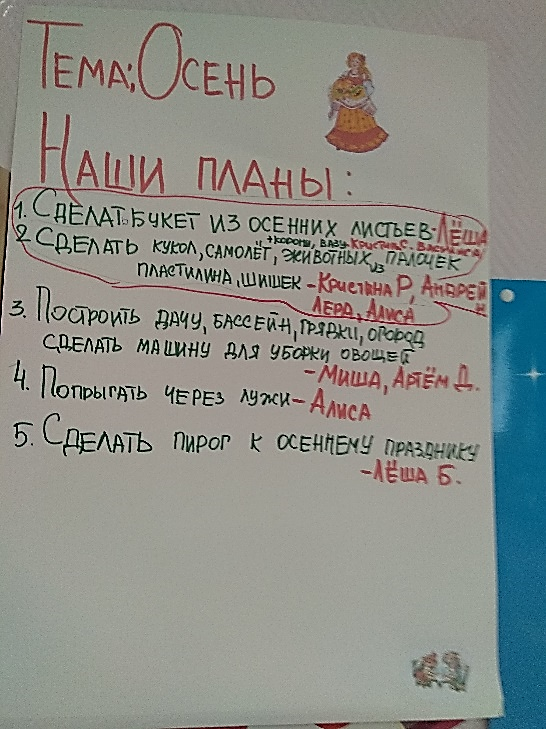 Тема: Осень
Наши планы:
1. Сделать букет из осенних листьев - Лёша
+ корону, вазу - Кристина С. Василиса
2 Сделать кукол, самолёт, животных из палочек
пластилина, шишек - Кристина Р, Андрей Н
Лера, Алиса
3. Построить дачу, бассейн, грядки, огород
сделать машину для уборки овощей
- Миша, Артём Д.
4. Попрыгать через лужи - Алиса
5. Сделать пирог к осеннему празднику
- Лёша Б.